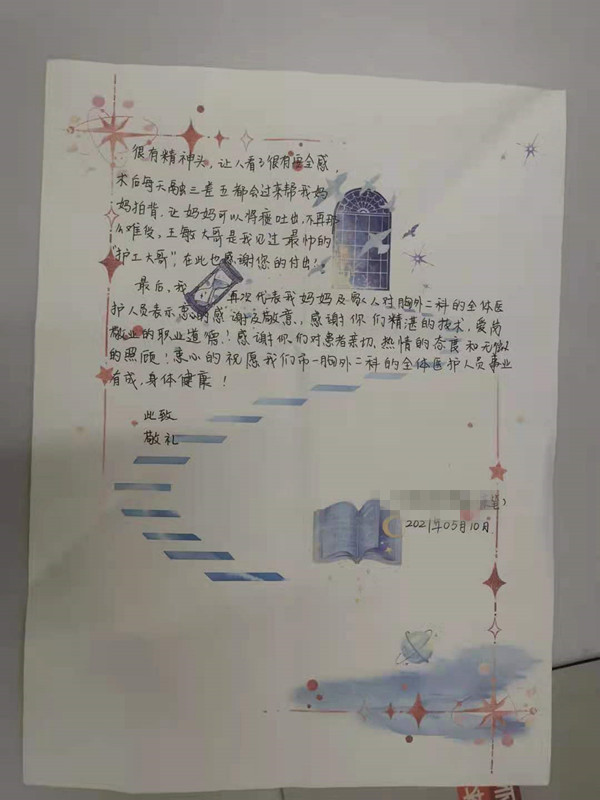 很有精神头，让人看了很有安全感，
术后每天融三查五都会过来帮我妈
妈拍背，让妈妈可以将痰吐出，不再那
么难受，王敏大哥是我见过最帅的
“护工大哥”，在此也感谢您的付出！
最后，我 再次代表我妈妈及家人对胸外二科的全体医
护人员表示衷心的感谢及敬意，感谢你们精湛的技术，爱岗
敬业的职业道德！感谢你们对患者亲切、热情的态度和无微
的照顾！衷心的祝愿我们市一胸外二科的全体医护人员事业
有成，身体健康！
此致
敬礼
笔）
2021年05月10日